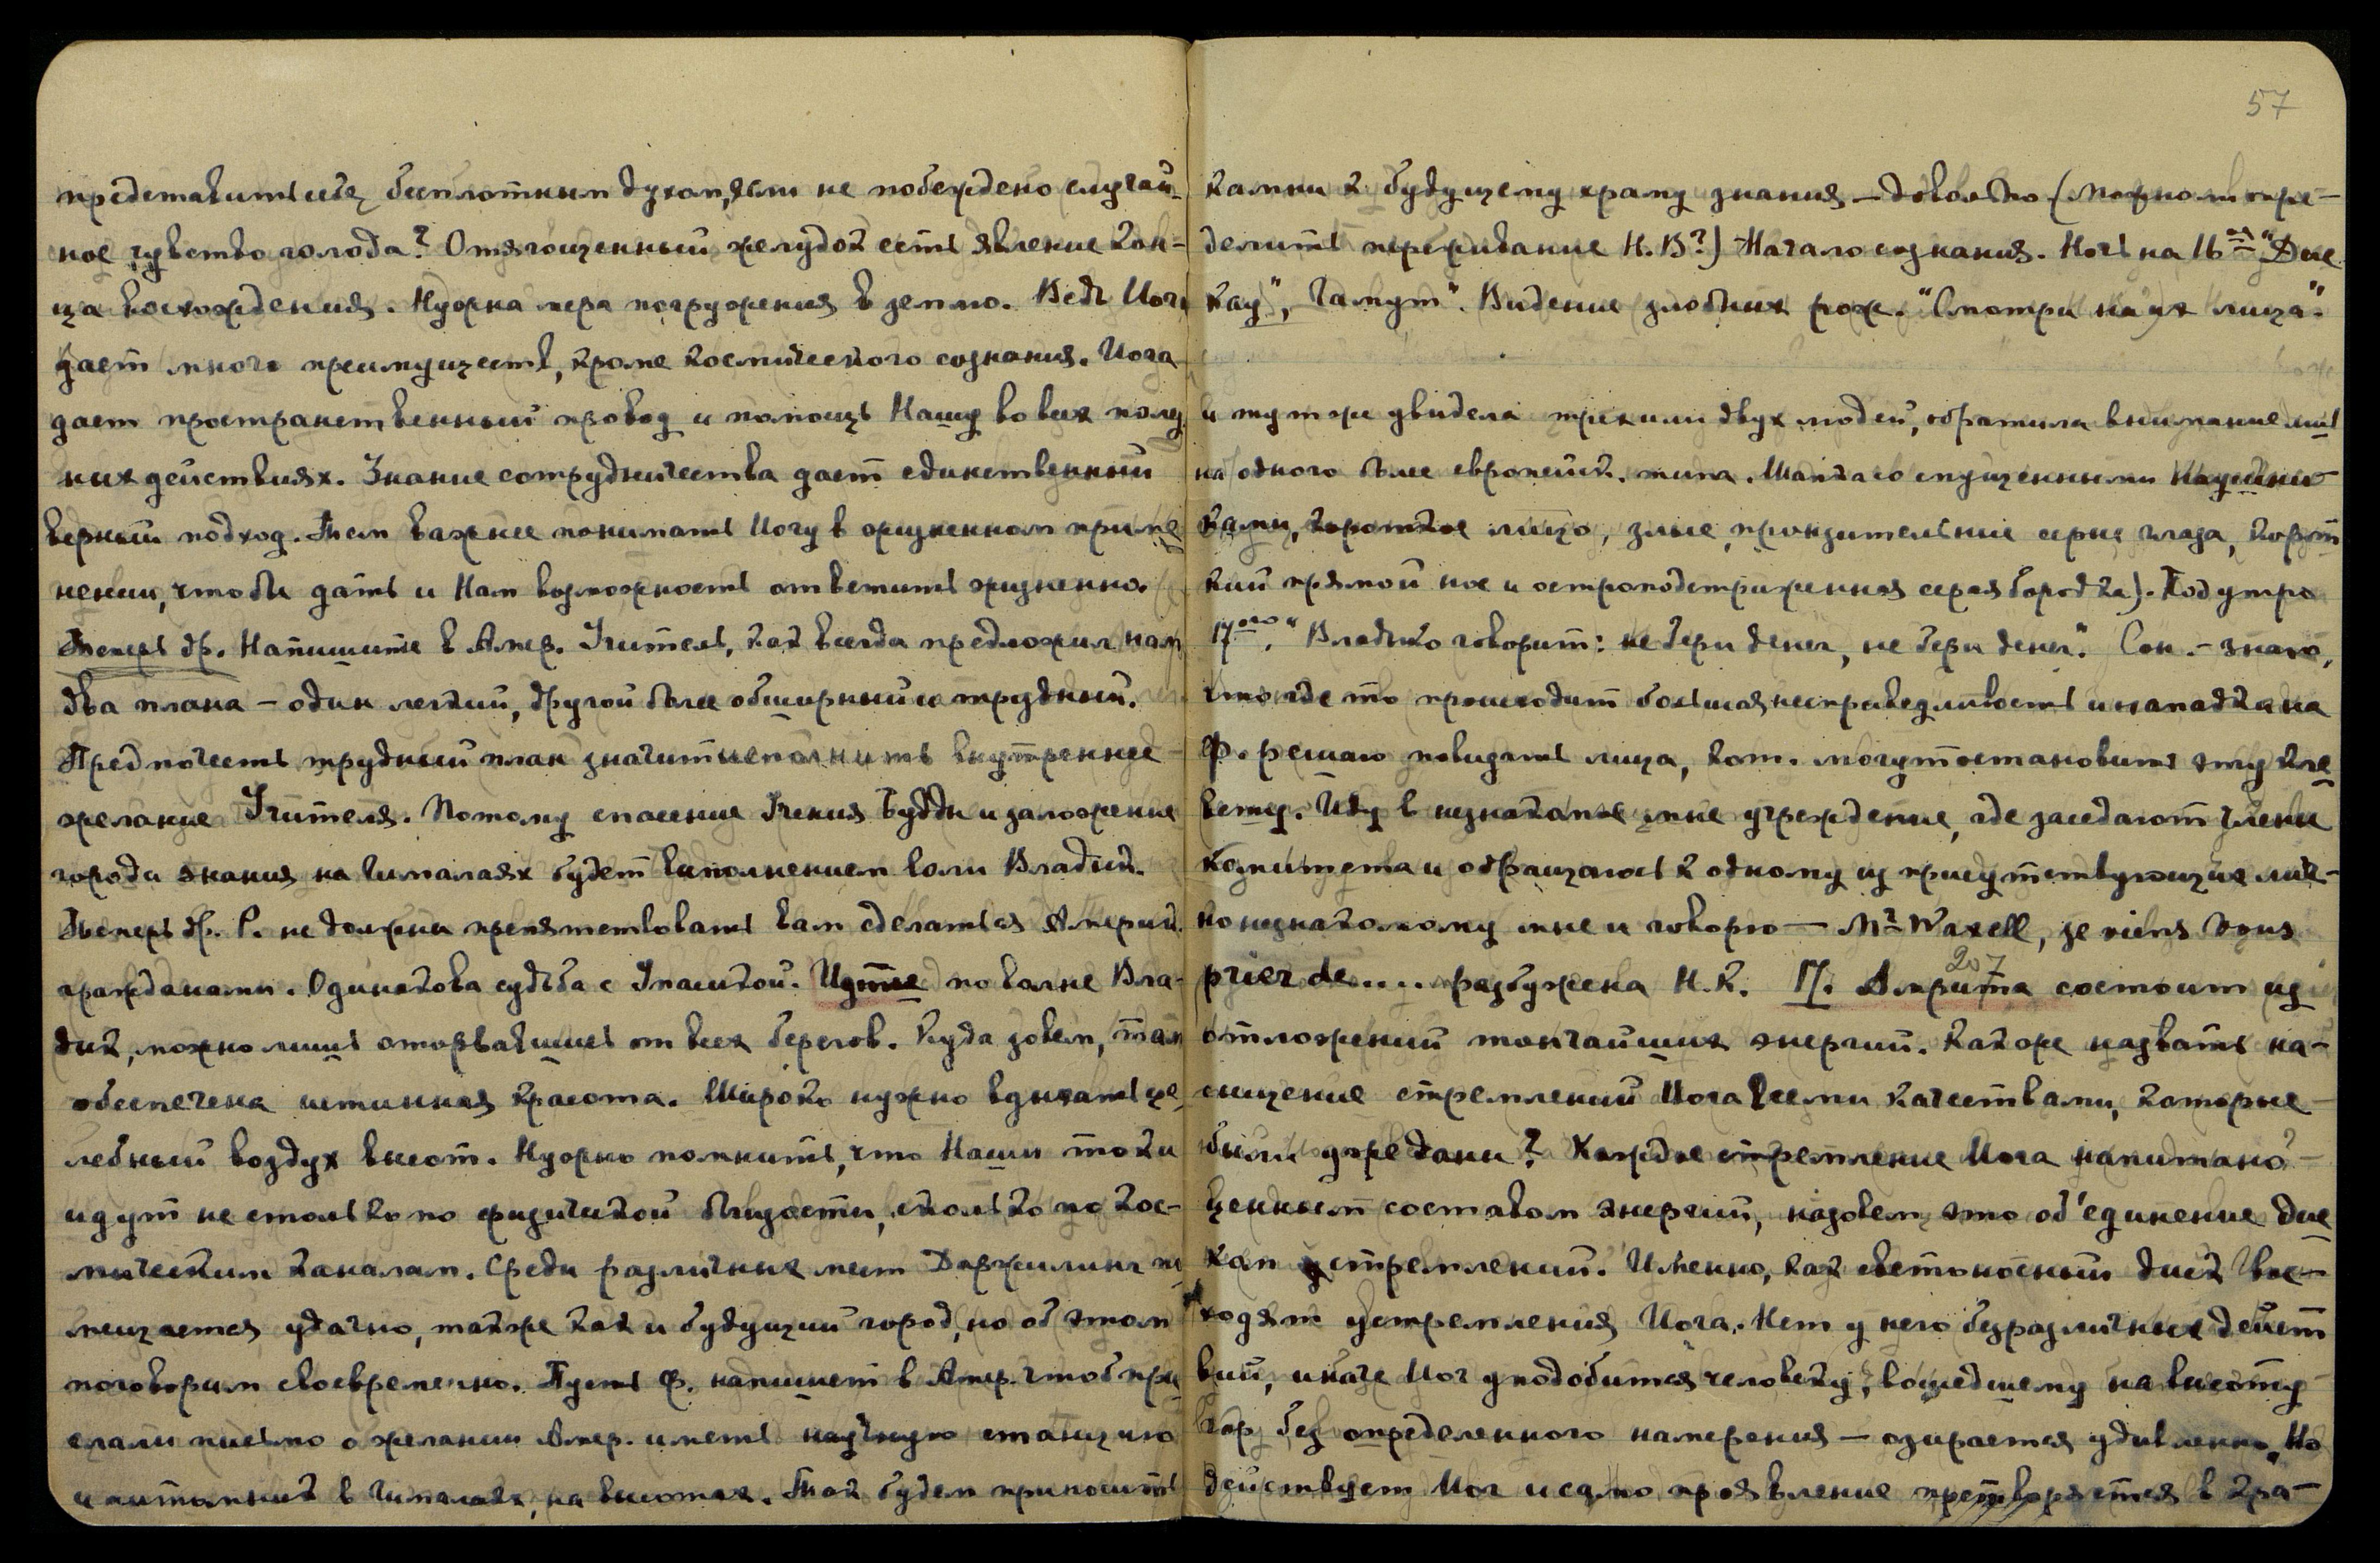 представить себе бесплотным духом, если не побеждено случай-
ное чувство голода? Отягощенный желудок есть явление кон-
ца восхождения. Нужна мера погружения в землю. Ведь Йога
дает много преимуществ, кроме космического сознания. Йога
дает пространственный провод и помощь Нашу во всех полез
ных действиях. Знание сотрудничества дает единственный
верный подход. Тем важнее понимать Йогу в жизненном приме
нении, чтобы дать и Нам возможность ответить жизненно.
Теперь др. Напишите в Амер. Учитель, как всегда предложил нам
два плана – один легкий, другой более обширный и трудный.
Предпочесть трудный план значит исполнить внутреннее
желание Учителя. Потому спасение Учения Будды и заложение
города знания на Гималаях будет выполнением воли Владык.
Теперь др. Р. не должны препятствовать вам сделаться Америк.
гражданами. Одинакова судьба с Упасикой. Идите по волне Вла-
дык, можно лишь оторвавшись от всех берегов. Куда зовем, там
обеспечена истинная красота. Широко нужно вдыхать це
лебный воздух высот. Нужно помнить, что Наши токи
идут не столько по физической близости, сколько по кос-
мическим каналам. Среди различных мест Даржилинг
мещается удачно, также как и будущий город, но об этом
поговорим своевременно. Пусть Ф. напишет в Амер. чтоб при
слали письмо о желании Амер. иметь научную станцию
и ашрам в Гималаях, на высотах. Так будем приносить
57
камни к будущему храму знания – довольно. (Можно ли опре-
делить переживание Н. В?) Начало сознания. Ночь на 16ое "Дже
кау", Гамут". Видение злобных рож. "Смотри на их лица".
и тут же увидела трех или двух людей, обратила внимание лишь
на одного более европейск. типа. Шапка со спущенными наушни-
ками, короткое лицо, злые, пронзительные серые глаза, корот
кий прямой нос и остроподстриженная серая бородка). Под утро
17ого. "Владыко говорит: не бери денег, не бери денег". Сон. – знаю,
что где то происходит большая несправедливость и нападки на
Ф. решаю повидать лица, кот. могут остановить эту кле
вету. Иду в незнакомое мне учреждение, где заседают члены
комитета и обращаюсь к одному из присутствующих лич-
но незнакомому мне и говорю — Mr Waxell, je viens vous
prier de.... разбужена Н.К. 17. Амрита состоит из
207
отложений тончайших энергий. Как же назвать на-
сыщение стремлений Йога всеми качествами, которые
были уже даны? Каждое стремление Йога напитано
ценным составом энергий, назовем это об'единение дис
ком устремлений. Именно, как светоносный диск вос-
ходят устремления Йога. Нет у него безразличных дейст
вий, иначе Йог уподобится человеку, вошедшему на высоту
гор без определенного намерения – озирается удивленно. Но
действует Йог и само проявление претворяется в гра-